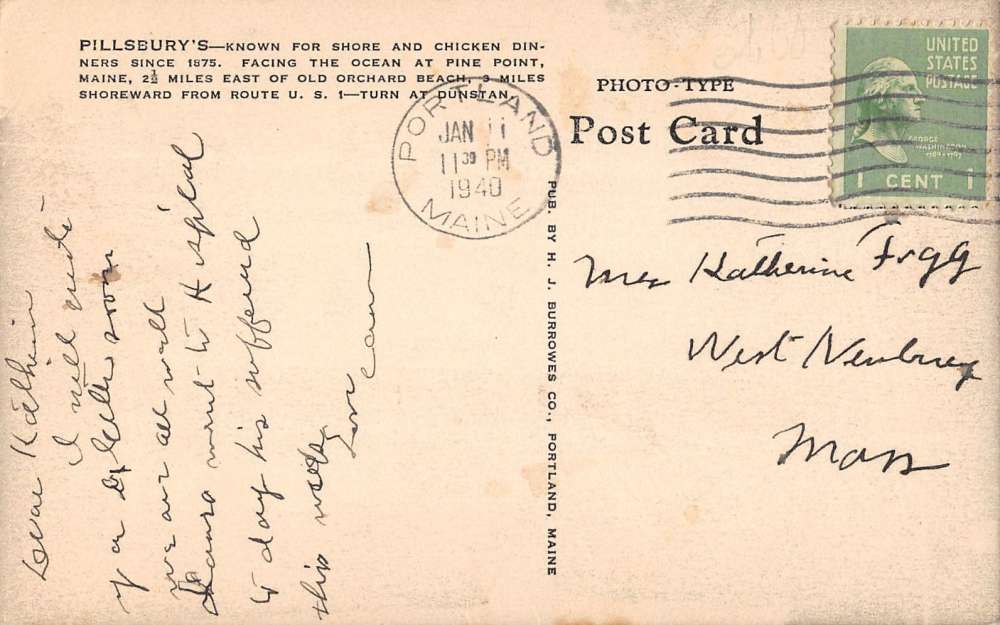 PILLSBURY'S—KNOWN FOR SHORE AND CHICKEN DIN-
NERS SINCE 1875. FACING THE OCEAN AT PINE POINT,
MAINE, 2½ MILES EAST OF OLD ORCHARD BEACH, 3 MILES
SHOREWARD FROM ROUTE U. S. 1—TURN AT DUNSTAN.
PORTLAND
JAN 11
11 30 PM
1940
MAINE
PHOTO-TYPE
Post Card
UNITED
STATES
POSTAGE
GEORGE
WASHINGTON
1789-1797
1 CENT 1
PUB. BY H. J. BURROWES CO., PORTLAND, MAINE
Mrs Katherine
West Newbury
Mass
Dear
I will write
soon
we are all well
went to
to day his suffered
this week
Love